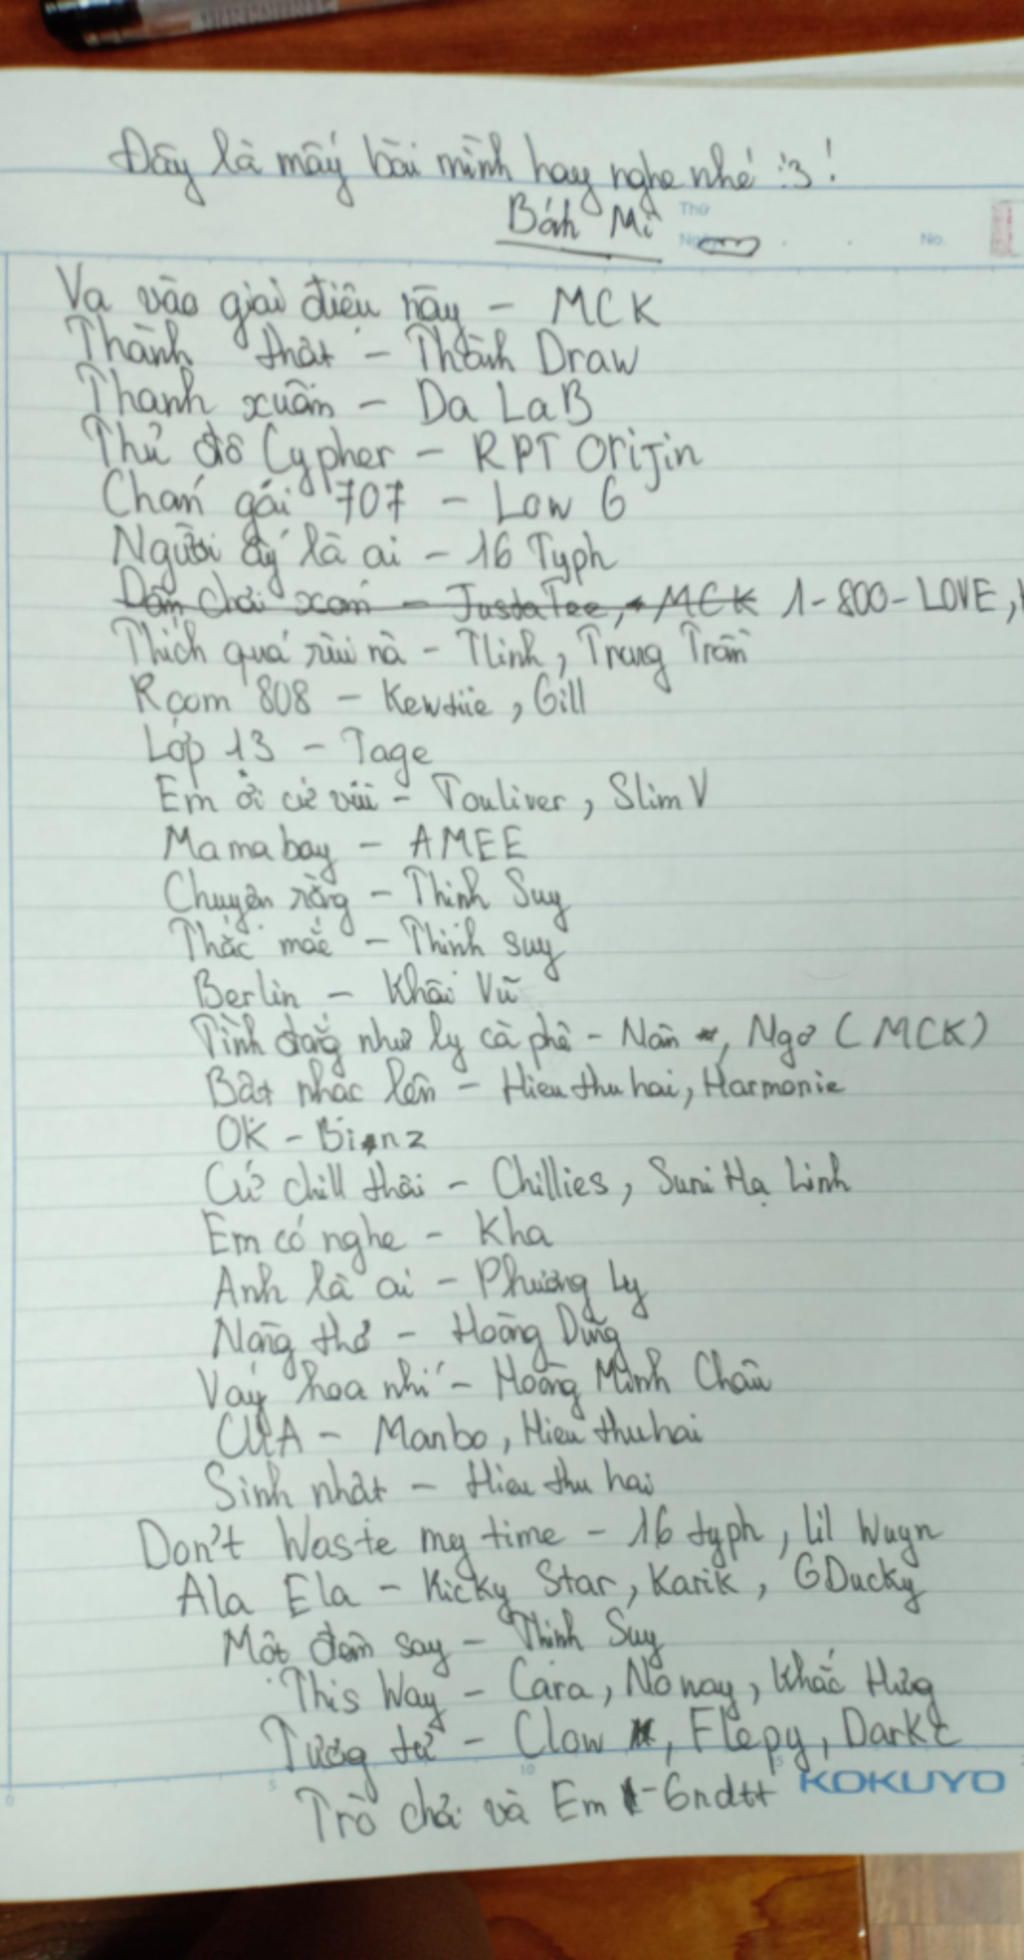 Đây là mấy bài mình hay nghe nhé :3!
Bánh Mì
Thứ
Ngày
No.
Va vào giai điệu này - MCK
Thành thật - Thành Draw
Thanh xuân - Da LaB
Thủ đô Cypher - RPT Orijin
Chán gái 707 - Low G
Người ấy là ai - 16 Typh
Dân chơi xóm - JustaTee, MCK 1-800-LOVE,
Thích quá rùi nà - Tlinh, Trung Trần
Room 808 - Kewtiie, Gill
Lớp 13 - Tage
Em ơi cứ vui - Touliver, Slim V
Mama boy - AMEE
Chuyện rằng - Thịnh Suy
Thắc mắc - Thịnh suy
Berlin - Khải Vũ
Tình đắng như ly cà phê - Nân, Ngơ (MCK)
Bật nhạc lên - Hieu thu hai, Harmonie
OK - Binz
Cứ chill thôi - Chillies, Suni Hạ Linh
Em có nghe - Kha
Anh là ai - Phương Ly
Nàng thơ - Hoàng Dũng
Váy hoa nhí - Hoàng Minh Châu
CUA - Manbo, Hieu thuhai
Sinh nhật - Hieu thu hai
Don't Waste my time - 16 typh, Lil Wuyn
Ala Ela - Ricky Star, Karik, GDucky
Một đêm say - Thịnh Suy
This Way - Cara, Noway, Khắc Hưng
Tương tư - Clow, Flepy, Dark
Trò chơi và Em - Gndtt
KOKUYO